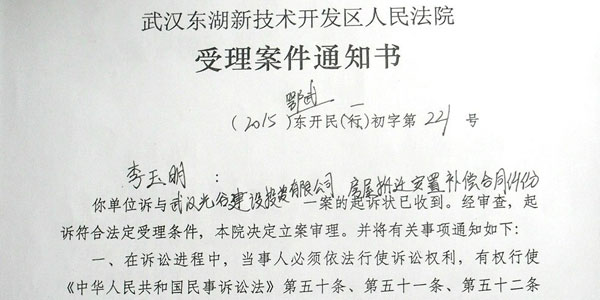 武汉东湖新技术开发区人民法院
受理案件通知书
鄂武
(2015)东开民(标)初字第 221 号
李玉明:
你单位诉与武汉光谷建设投资有限公司 房屋拆迁安置补偿合同纠纷
一案的起诉状已收到。经审查,起
诉符合法定受理条件,本院决定立案审理。并将有关事项通知如下:
一、在诉讼进程中,当事人必须依法行使诉讼权利,有权行使
《中华人民共和国民事诉讼法》第五十条、第五十一条、第五十二条